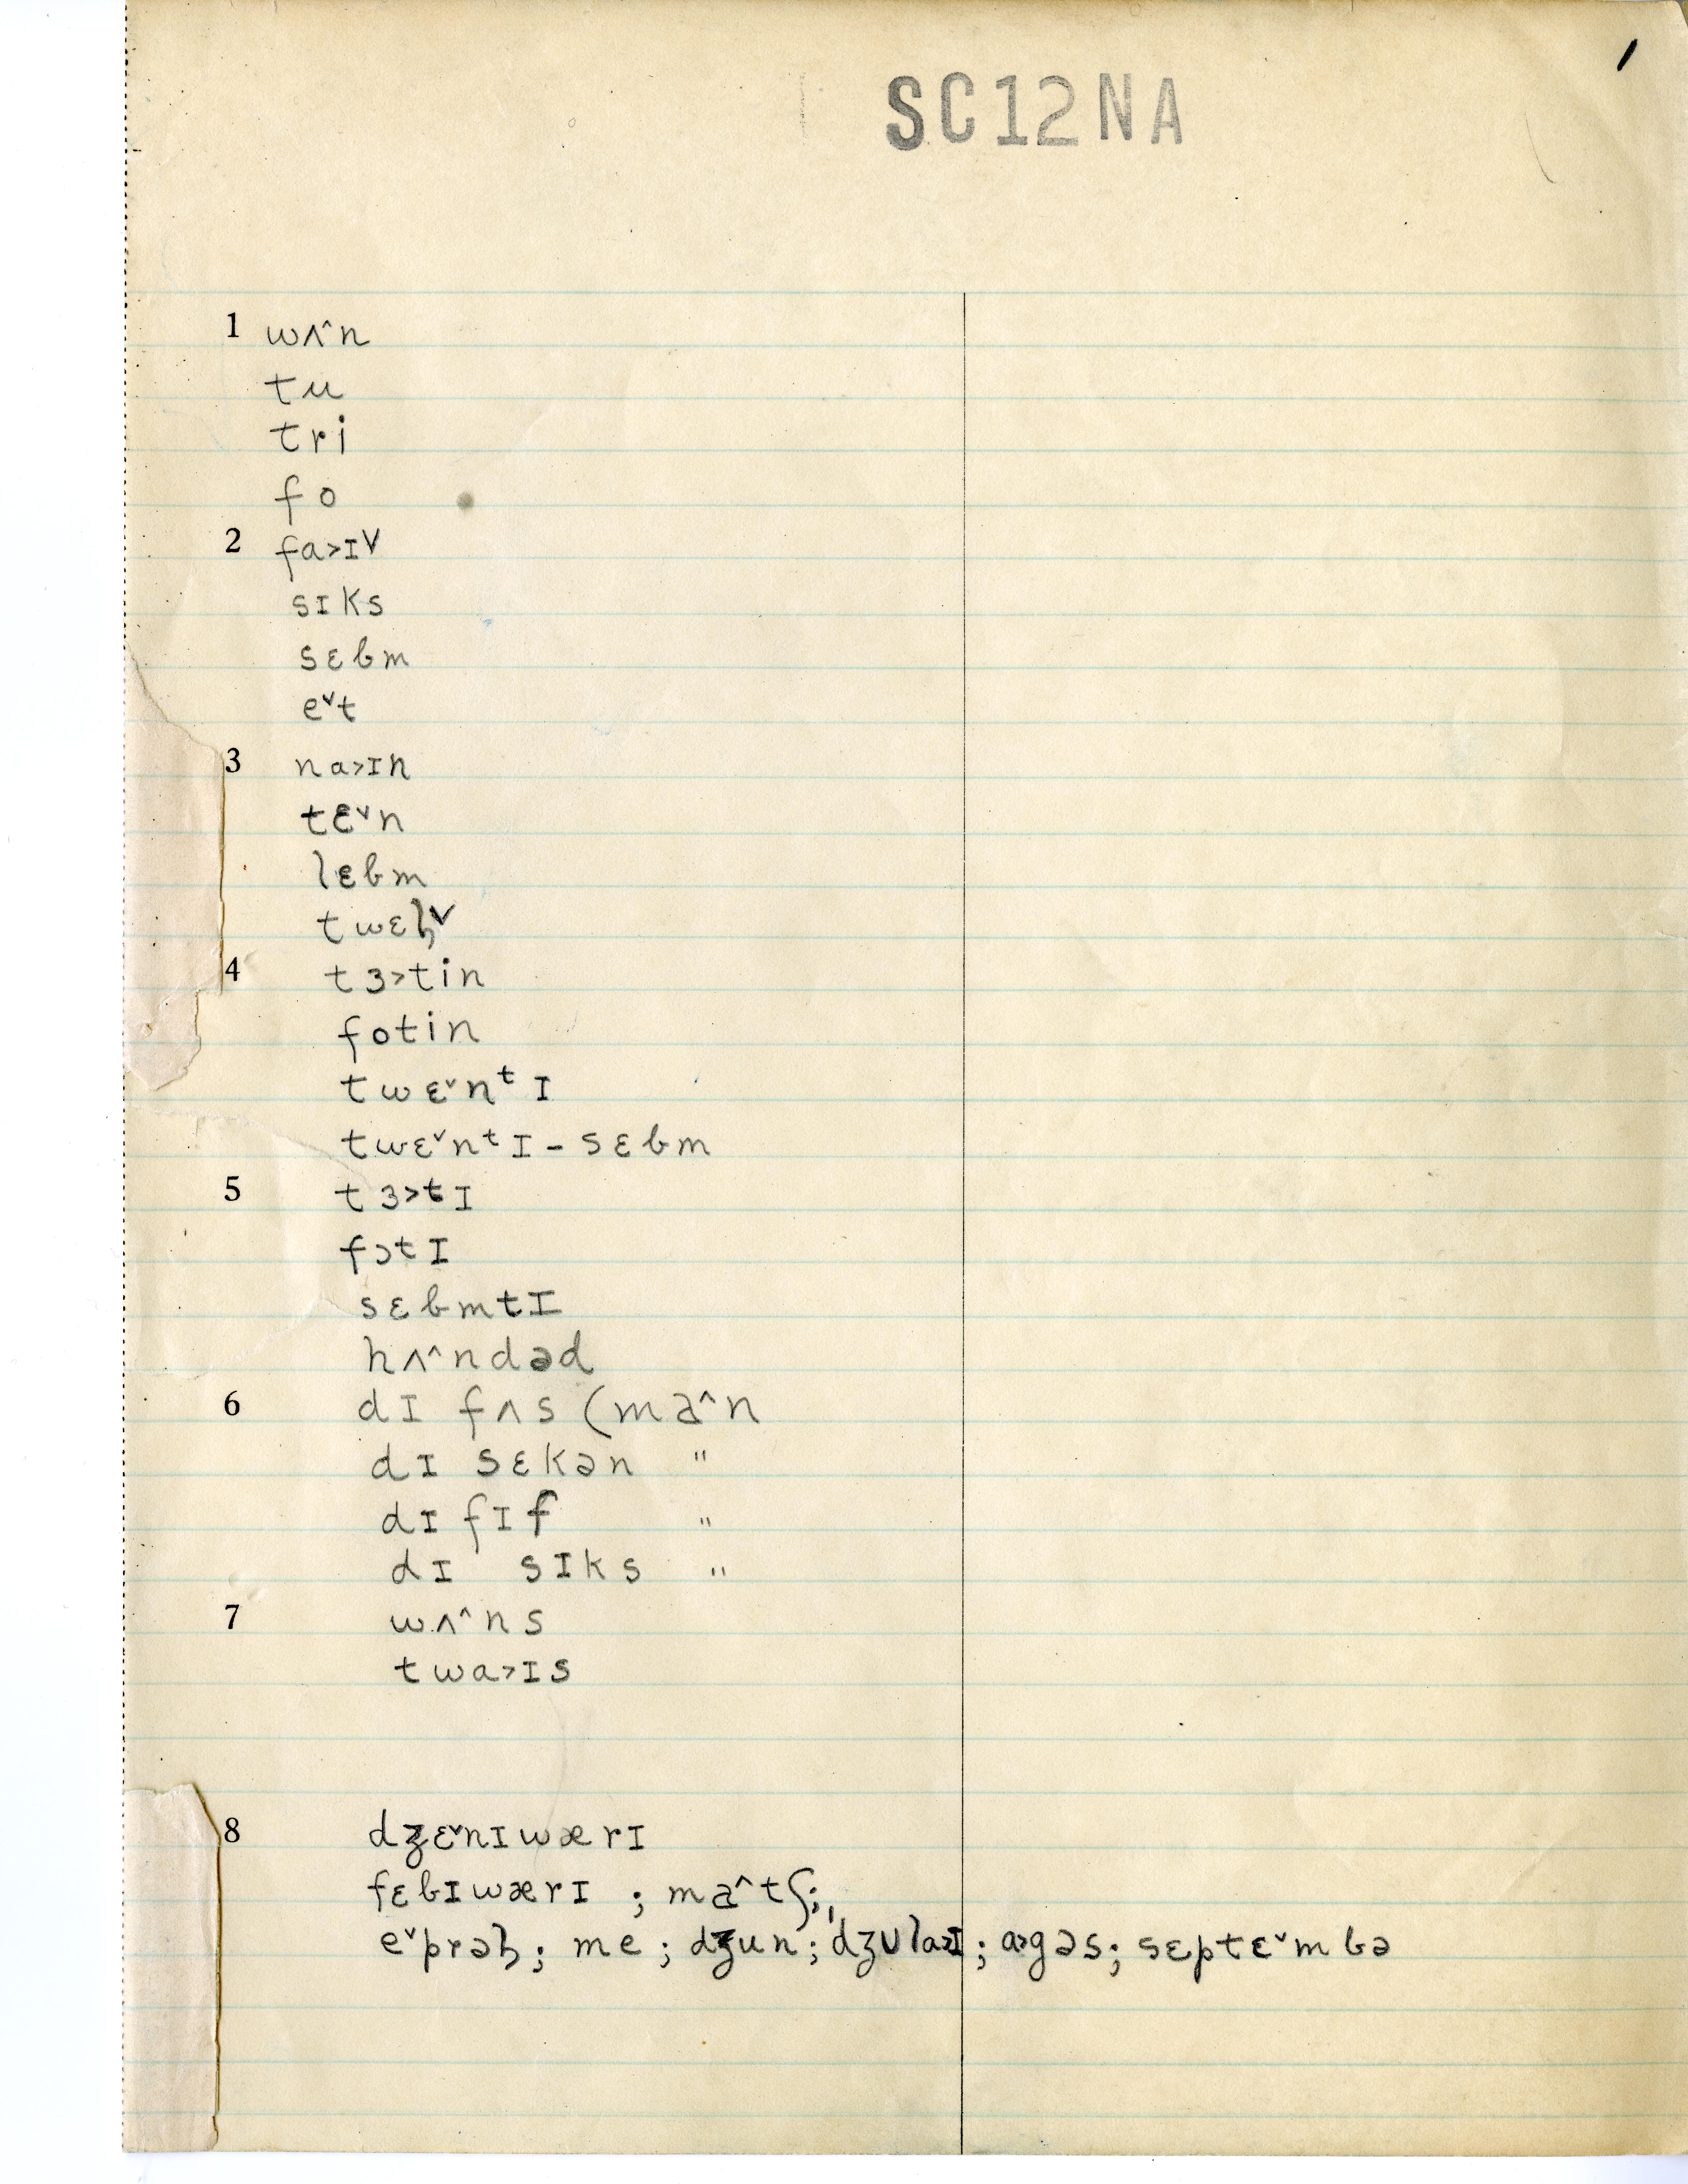 1
SC12NA
1 wʌ˄n
tu
tri
fo
2 fa˃ɪv
sɪks
sɛbm
e˅t
3 na˃ɪn
tɛ˅n
lɛbm
4 tɜ˃tin
fotin
twɛ˅nᵗɪ
twɛ˅nᵗɪ-sɛbm
5 tɜ˃tɪ
fɔtɪ
sɛbmtɪ
hʌ˄ndəd
6 dɪ fʌs (ma˄n
dɪ sɛkən "
dɪ fɪf "
dɪ sɪks "
7 wʌ˄ns
twa˃ɪs
8 dʒɛ˅nɪwærɪ
fɛbɪwærɪ ; ma˄tʃ;
e˅prəl̹; me; dʒun; dʒʊla˃ɪ; a˃gəs; sɛptɛ˅mbə